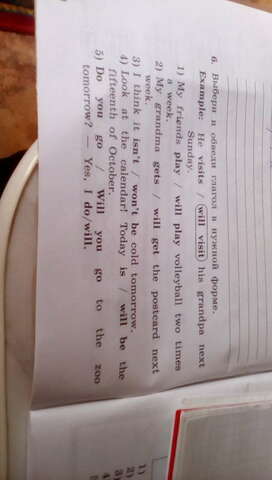 6. Выбери и обведи глагол в нужной форме.
Example: He visits / (will visit) his grandpa next
Sunday.
1) My friends play / will play volleyball two times
a week.
2) My grandma gets / will get the postcard next
week.
3) I think it isn't / won't be cold tomorrow.
4) Look at the calendar! Today is / will be the
fifteenth of October.
5) Do you go / Will you go to the zoo
tomorrow? — Yes, I do/will.
1)
2)
3)
4
5